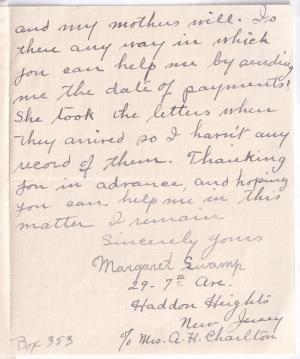 and my mothers will. Is
there any way in which
you can help me by sending
me the date of payments?
She took the letters when
they arrived so I havn't any
record of them. Thanking
you in advance, and hoping
you can help me in this
matter I remain
Sincerely yours
Margaret Swamp
29- 7th Ave.
Haddon Heights
New Jersey
c/o Mrs. A. H. Charlton
Box 353